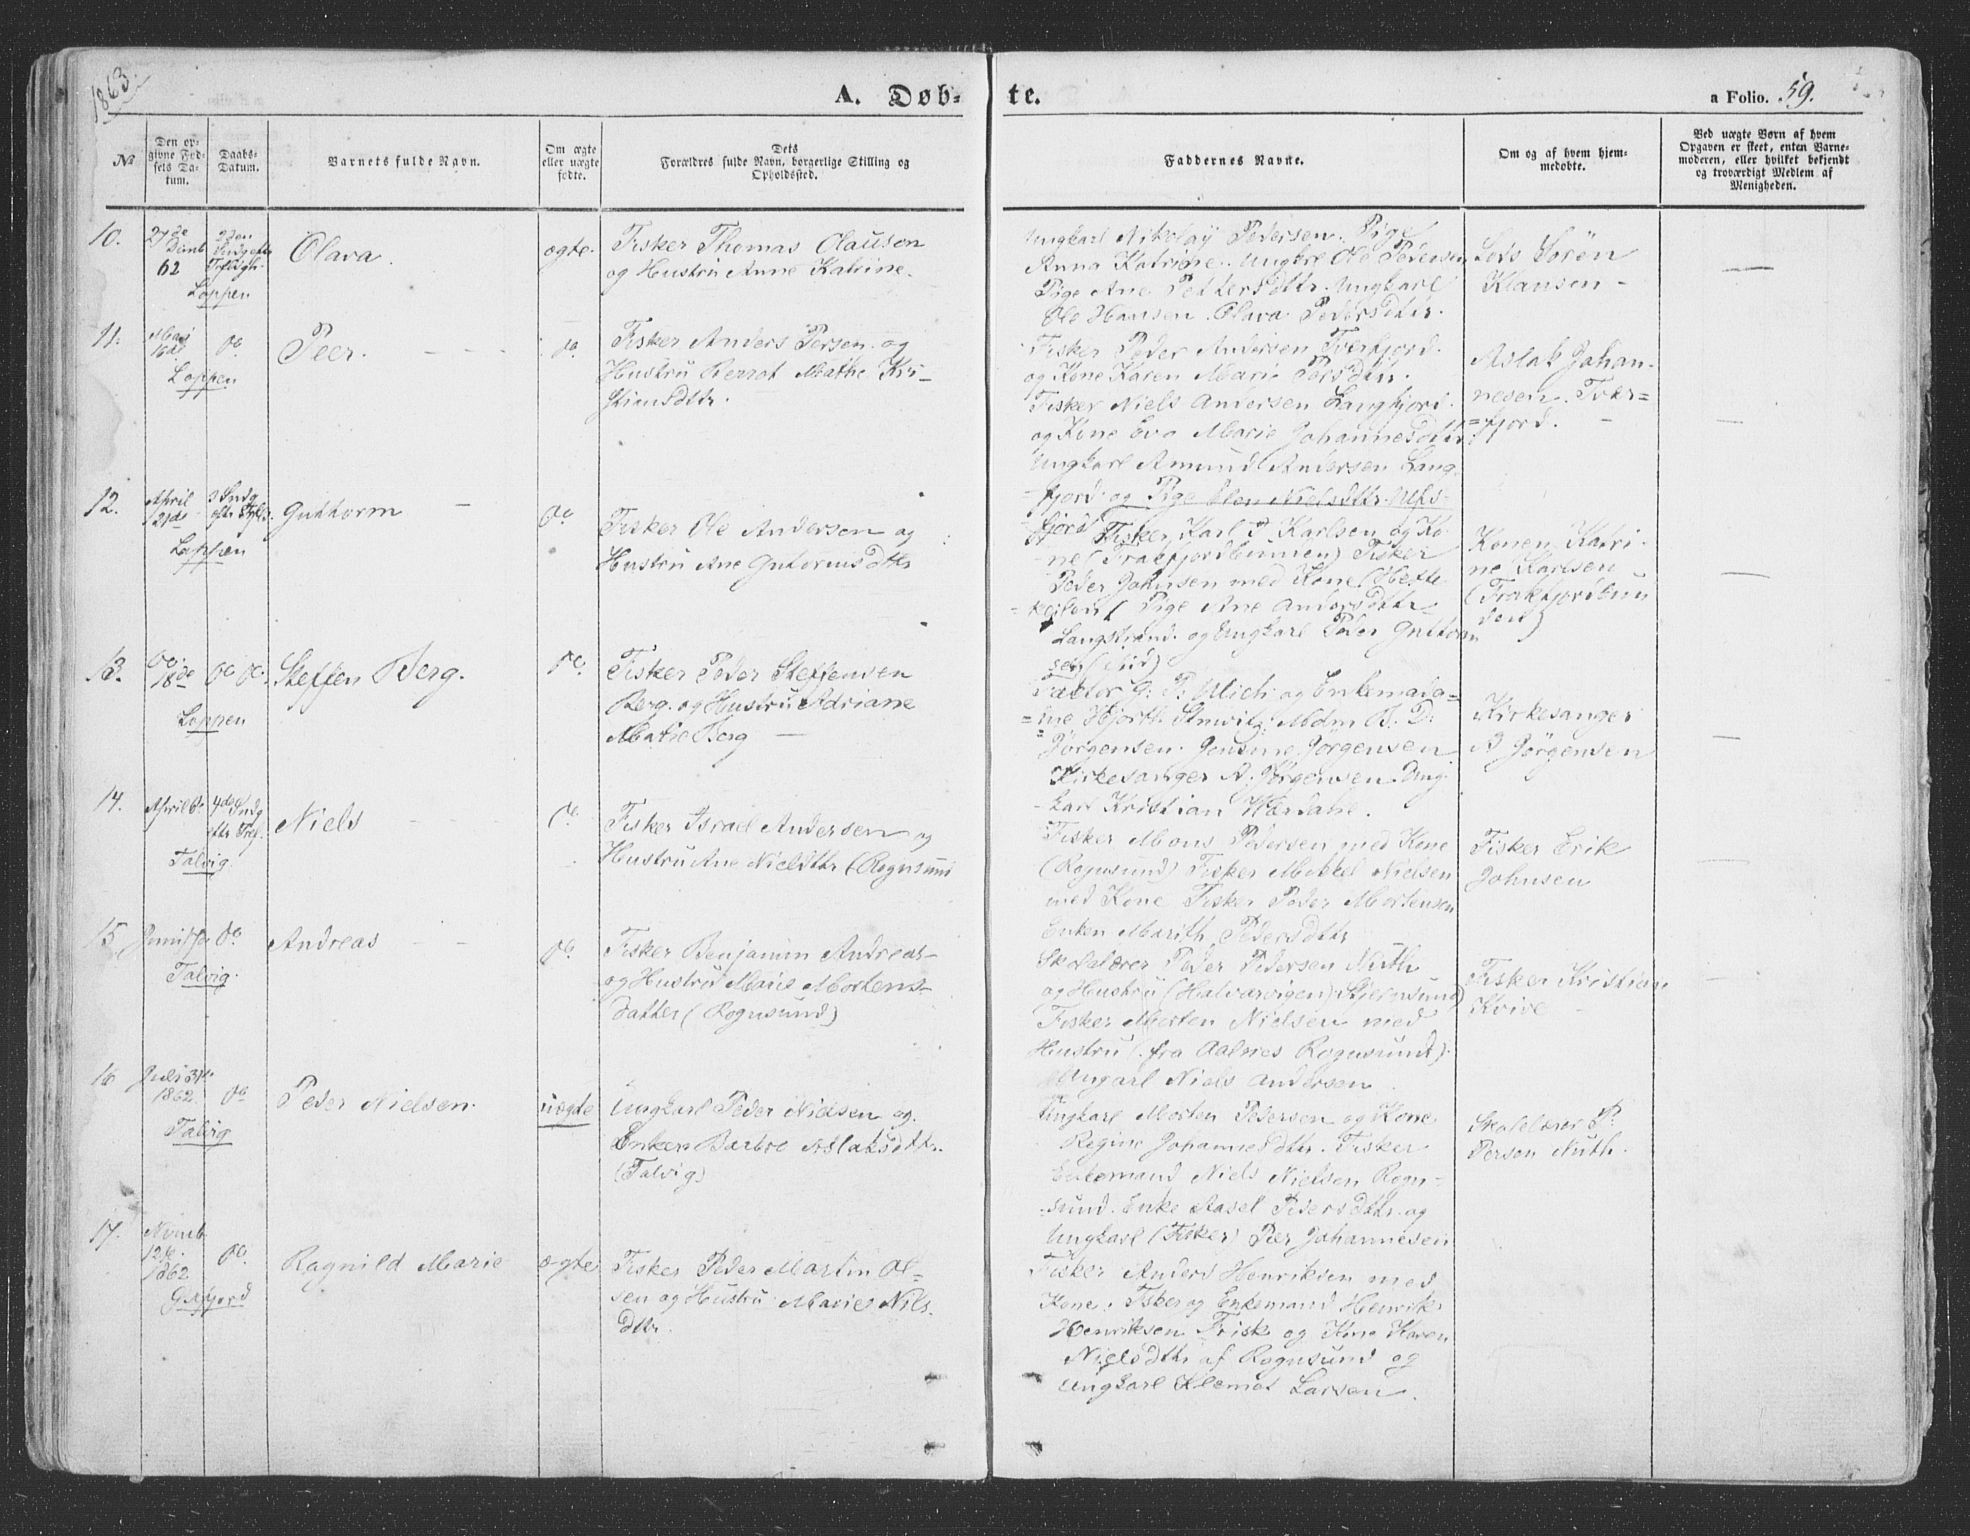 1863.
A. Døb-
te.
a Folio. 59.
No
Den op-
givne Fød-
sels Da-
tum.
Daabs-
Datum.
Barnets fulde Navn.
Om ægte
eller uægte
fødte.
Dets
Forældres fulde Navn, borgerlige Stilling og
Opholdssted.
Faddernes Navne.
Om og af hvem hjem-
medøbte.
Ved uægte Børn af hvem
Opgaven er skeet, enten Barne-
moderen, eller hvilket bekjendt
og troværdigt Medlem af
Menigheden.
10.
27de
Decmb
62
2den
Sndg eftr
Loppen
Olava.
ægte.
Fisker Thomas Olauson
og Hustru Anne Katrine.
Ungkarl Nikolay Pedersen. Pige
Anna Katrine. Ungkrl Ole Pedersen
Pige Ane Pettersdttr. Ungkarl
Ole Hansen. Olava Pedersdttr.
Sörön
Klausen -
11.
Mai
16de
do
Loppen
Peer.
do
Fisker Anders Persen og
Hustru Berrot Mathe Kri-
stiansdttr.
Fisker Peder Andersen Tverfjord.
og Kone Karen Marie Persdttr.
Fisker Niels Andersen Langfjord.
og Kone Eva Marie Johannesdttr
Ungkarl Amund Andersen Lang
fjord og Pige Elen Nielsdttr. Ufs-
fjord
Aslak Johan-
nesen. Tver=
=fjord.
12.
April
21de
3 Sndg
Loppen
Guttorm
do
Fisker Ole Andersen og
Hustru Ane Gutormsdttr
Fisker Karl P Karlsen og Ko-
ne (Frakfjordbunnen) Fisker
Peder Johnsen med Kone (Hette
=keilen) Pige Ane Andersdttr
Langstrand. og Ungkarl Peder Guttorm
sen (ibid)
Konen Katri-
ne Karlsen
(Frakfjordbun
den)
13.
do.
18de
do do.
Loppen
Steffen Berg.
do
Fisker Peder Steffensen
Berg. og Hustru Adriane
Marie Berg
Factor G. P. Ulich og Enkemada=
=me Hjorth. Mdm B. D.
Jörgensen. Jørgensen
Kirkesanger A. Jørgensen. Ung
karl Kristian
Kirkesanger
A Jörgensen
14.
April 6
4de Sndg
Talvig.
Niels
do
Fisker Israel Andersen og
Hustru Ane Nielsdttr (Rognsund
Fisker Mons Pedersen med Kone
(Rognsund) Fisker Mikkel Nielsen
med Kone Fisker Peder Mortensen
Enken Marith Pedersdttr
Fisker Erik
Johnsen
15
Juni
do
Talvig.
Andreas
do.
Fisker Benjamin Andreas-
og Hustru Marie Mortens-
datter (Rognsund)
Skolelærer Peder Pedersen Nuth
og Hustru (Halvarvigen) Stjernsund)
Fisker Morten Nielsen med
Hustru (fra Aalnes Rognsund).
Ungarl Niels Andersen.
Fisker Kristian
Kvive
16
Juli 31te
1862
do
Talvig
Peder Nielsen.
uægte
Ungkarl Peder Nielsen og
Enken Barbro Aslaksdttr.
(Talvig)
Ungkarl Morten Pedersen og Kone
Regine Johannesdttr. Fisker
Enkemand Niels Nielsen Rogn-
-sund. Enke Aasel Pedersdttr. og
Ungkarl (Fisker) Peer Johannesen
Skolelærer P.
Person Nuth.
17.
Nvmb
12te
1862
do.
Ragnild Marie
ægte
Fisker Peder Martin Ol-
sen og Hustru Marie Nils
dttr.
Fisker Anders Henriksen med
Kone. Fsker og Enkemand Henrik
Henriksen Frisk og Kone Karen
Nielsdttr af Rognsund og
Ungkarl Klemet Larsen.